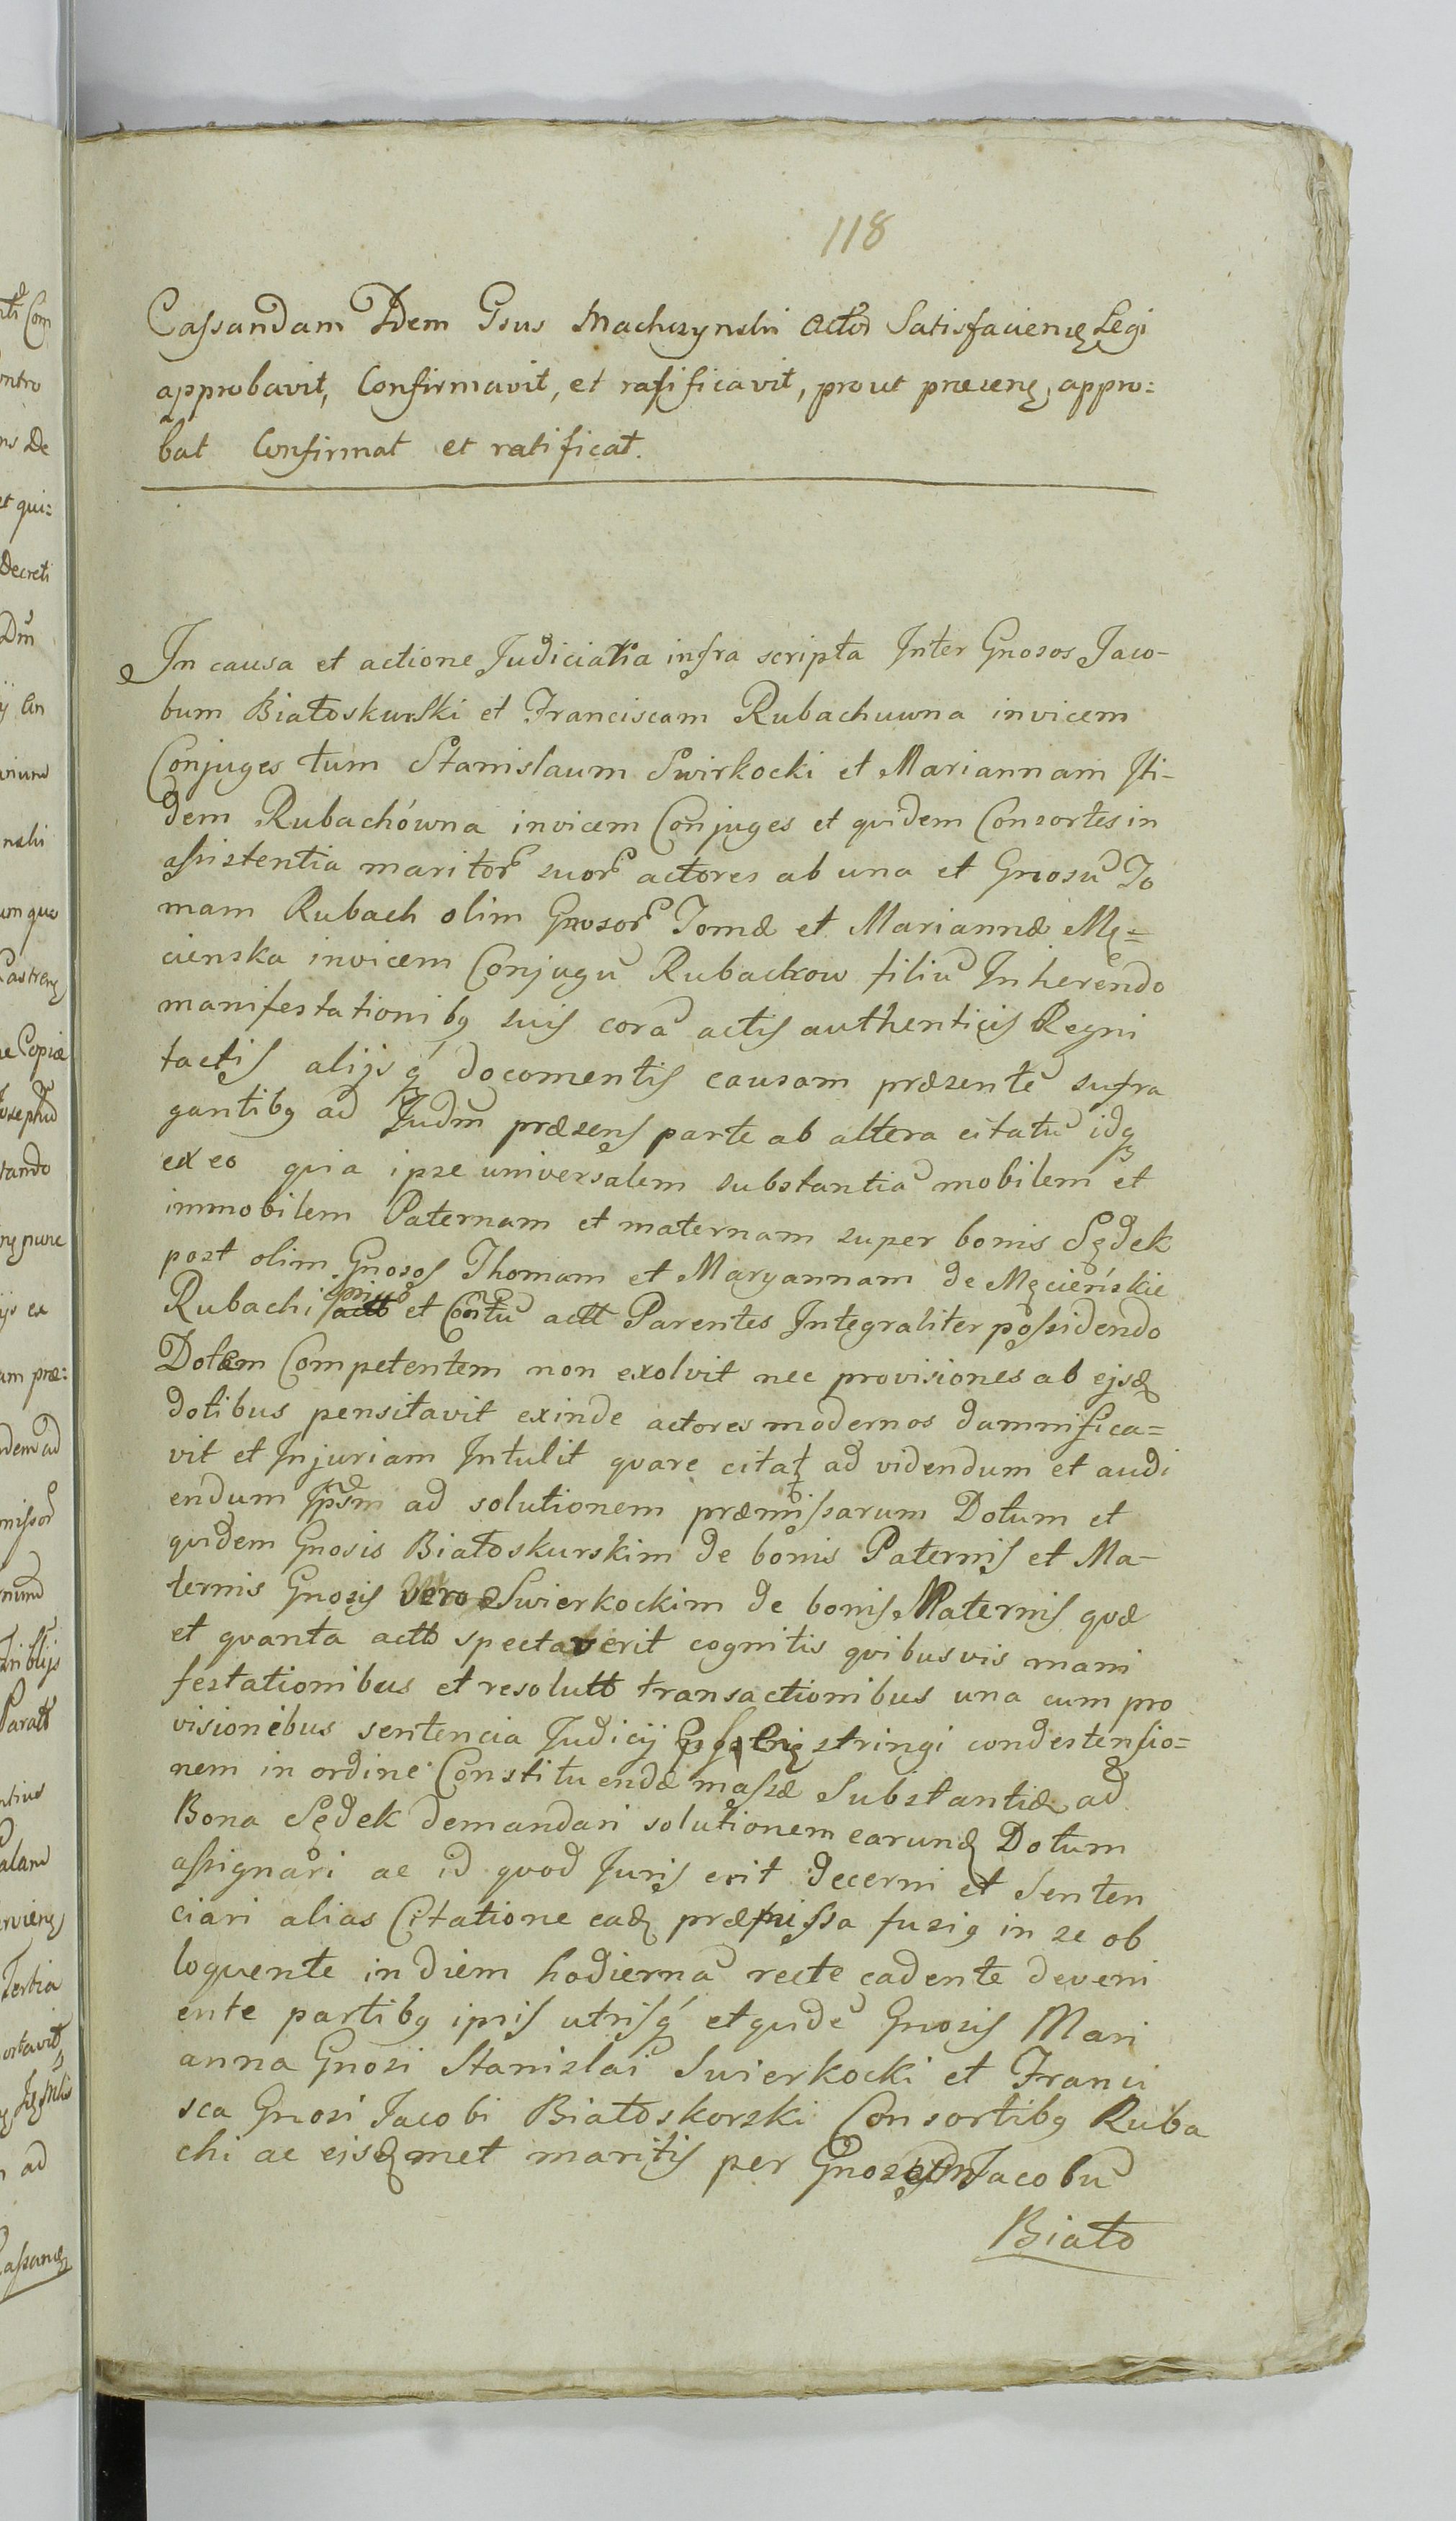 118
Cassandam Idem Gsus Machczynski Actor Satisfacienę Legi
approbavit, Confirmavit, et ratificavit, prout præsenę, appro:
bat Confirmat et ratificat.
In causa et actione Judiciaria infra scripta Inter Gnosos Jaco-
bum Białoskurski et Franciscam Rubachuwna invicem
Conjuges tum Stanislaum Swirkocki et Mariannam Iti-
dem Rubachówna invicem Conjuges et quidem Consortes in
assistentia maritor suor actores ab una et Gnosū To
mam Rubach olim Gnosor Tomæ et Mariannæ Mę=
cienska invicem Conjugū Rubachow filiū Inherendo
manifestationibq suis corā actis authenticis Regni
factis alijsq́ documentis causam præsentē sufra
gantibq ad Judm præsens parte ab altera citatū idq
ex eo quia ipse universalem substantiā mobilem et
immobilem Paternam et maternam super bonis Sędek
post olim Gnosos Thomam et Maryannam de Męcieńskie
Rubachi et Contū actt Parentes Integraliter possidendo
Dotem Competentem non exolvit nec provisiones ab ejsd
dotibus pensitavit exinde actores modernos damnifica=
vit et Injuriam Intulit qvare citat ad videndum et audi
endum Ipsm ad solutionem præmissarum Dotum et
quidem Gnosis Białoskurskim de bonis Paternis et Ma-
ternis Gnosis vero Swierkockim de bonis Maternis qvæ
et qvanta actt spectaverit cognitis qvibusvis mani
festationibus et resolutt transactionibus una cum pro
visionibus sentencia Judicij stringi condestensio=
nem in ordine Constituendæ massæ Substantiæ ad
Bona Sędek demandari solutionem earund Dotum
assignari ac id qvod Juris erit decerni et Senten
ciari alias Citatione ead præmissa fusiq in se ob
loqvente in diem hodiernā recte cadente deveni
ente partibq ipsis utrisq́ et quidē Gnosis Mari
anna Gnosi Stanislai Swierkocki et Franci
sca Gnosi Jacobi Białoskorski Consortibq Ruba
chi ac eisdmet maritis per Jacobū
Biało